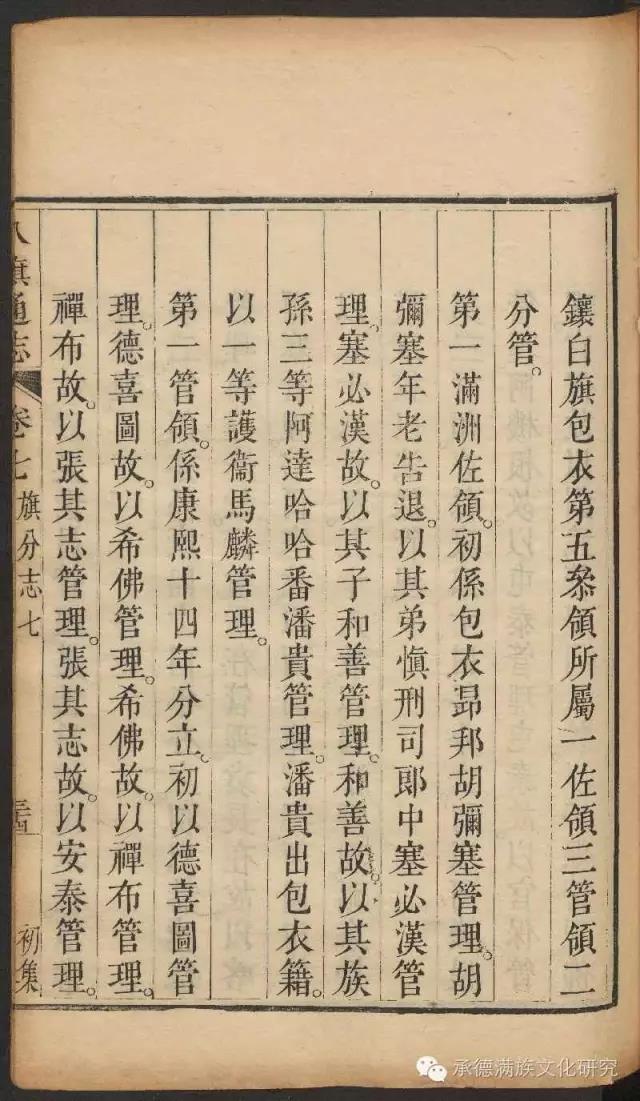 鑲白旗包衣第五叅領所屬一佐領三管領二
分管。
第一滿洲佐領。初係包衣昂邦胡彌塞管理。胡
彌塞年老告退。以其弟愼刑司郎中塞必漢管
理。塞必漢故。以其子和善管理。和善故。以其族
孫三等阿達哈哈番潘貴管理。潘貴出包衣籍。
以一等護衞馬麟管理。
第一管領。係康熙十四年分立。初以德喜圖管
理。德喜圖故。以希佛管理。希佛故。以禪布管理。
禪布故。以張其志管理。張其志故。以安泰管理。
八旗通志 卷七 旗分志七 初集
承德满族文化研究